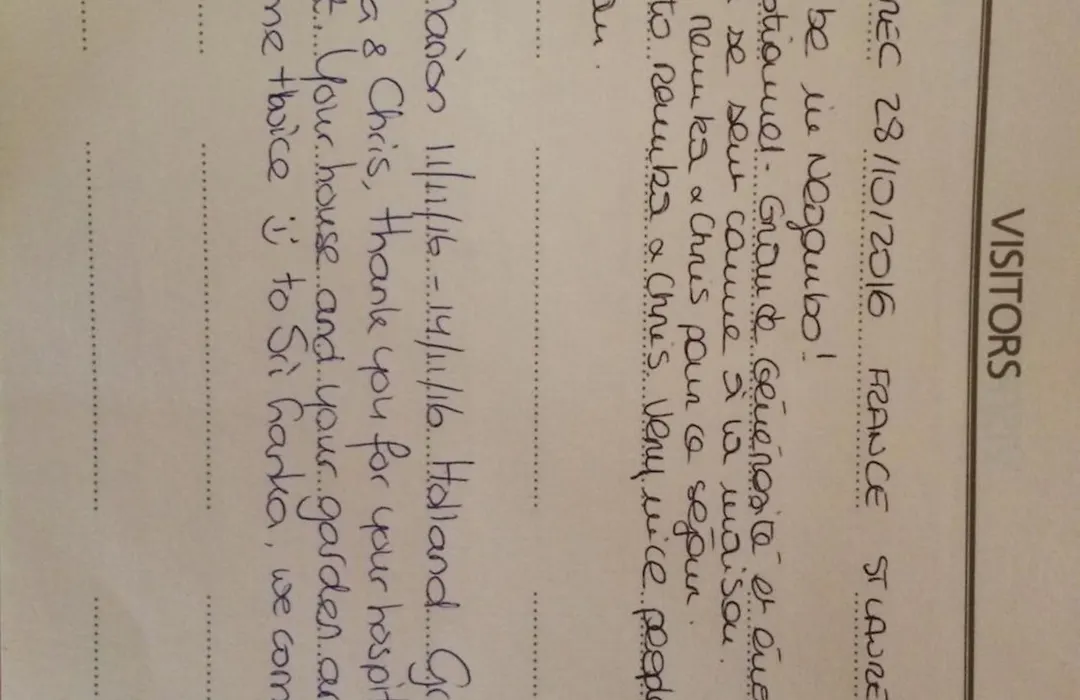 VISITORS
NEC 28/10/2016 FRANCE ST LAURE
be in Negombo!
ptionnel. Grande Générosité et
se sent comme à la maison.
renuka & Chris pour ce séjour.
to renuka & Chris Very nice peopl
arion 11/11/16 - 14/11/16 Holland Gr
a & Chris, thank you for your hospit
Your house and your garden ar
me twice :) to Sri Lanka, we com